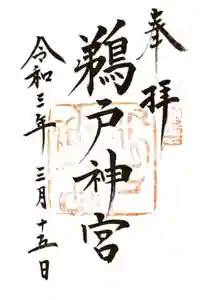 奉拝
鵜戸神宮
令和三年三月十五日